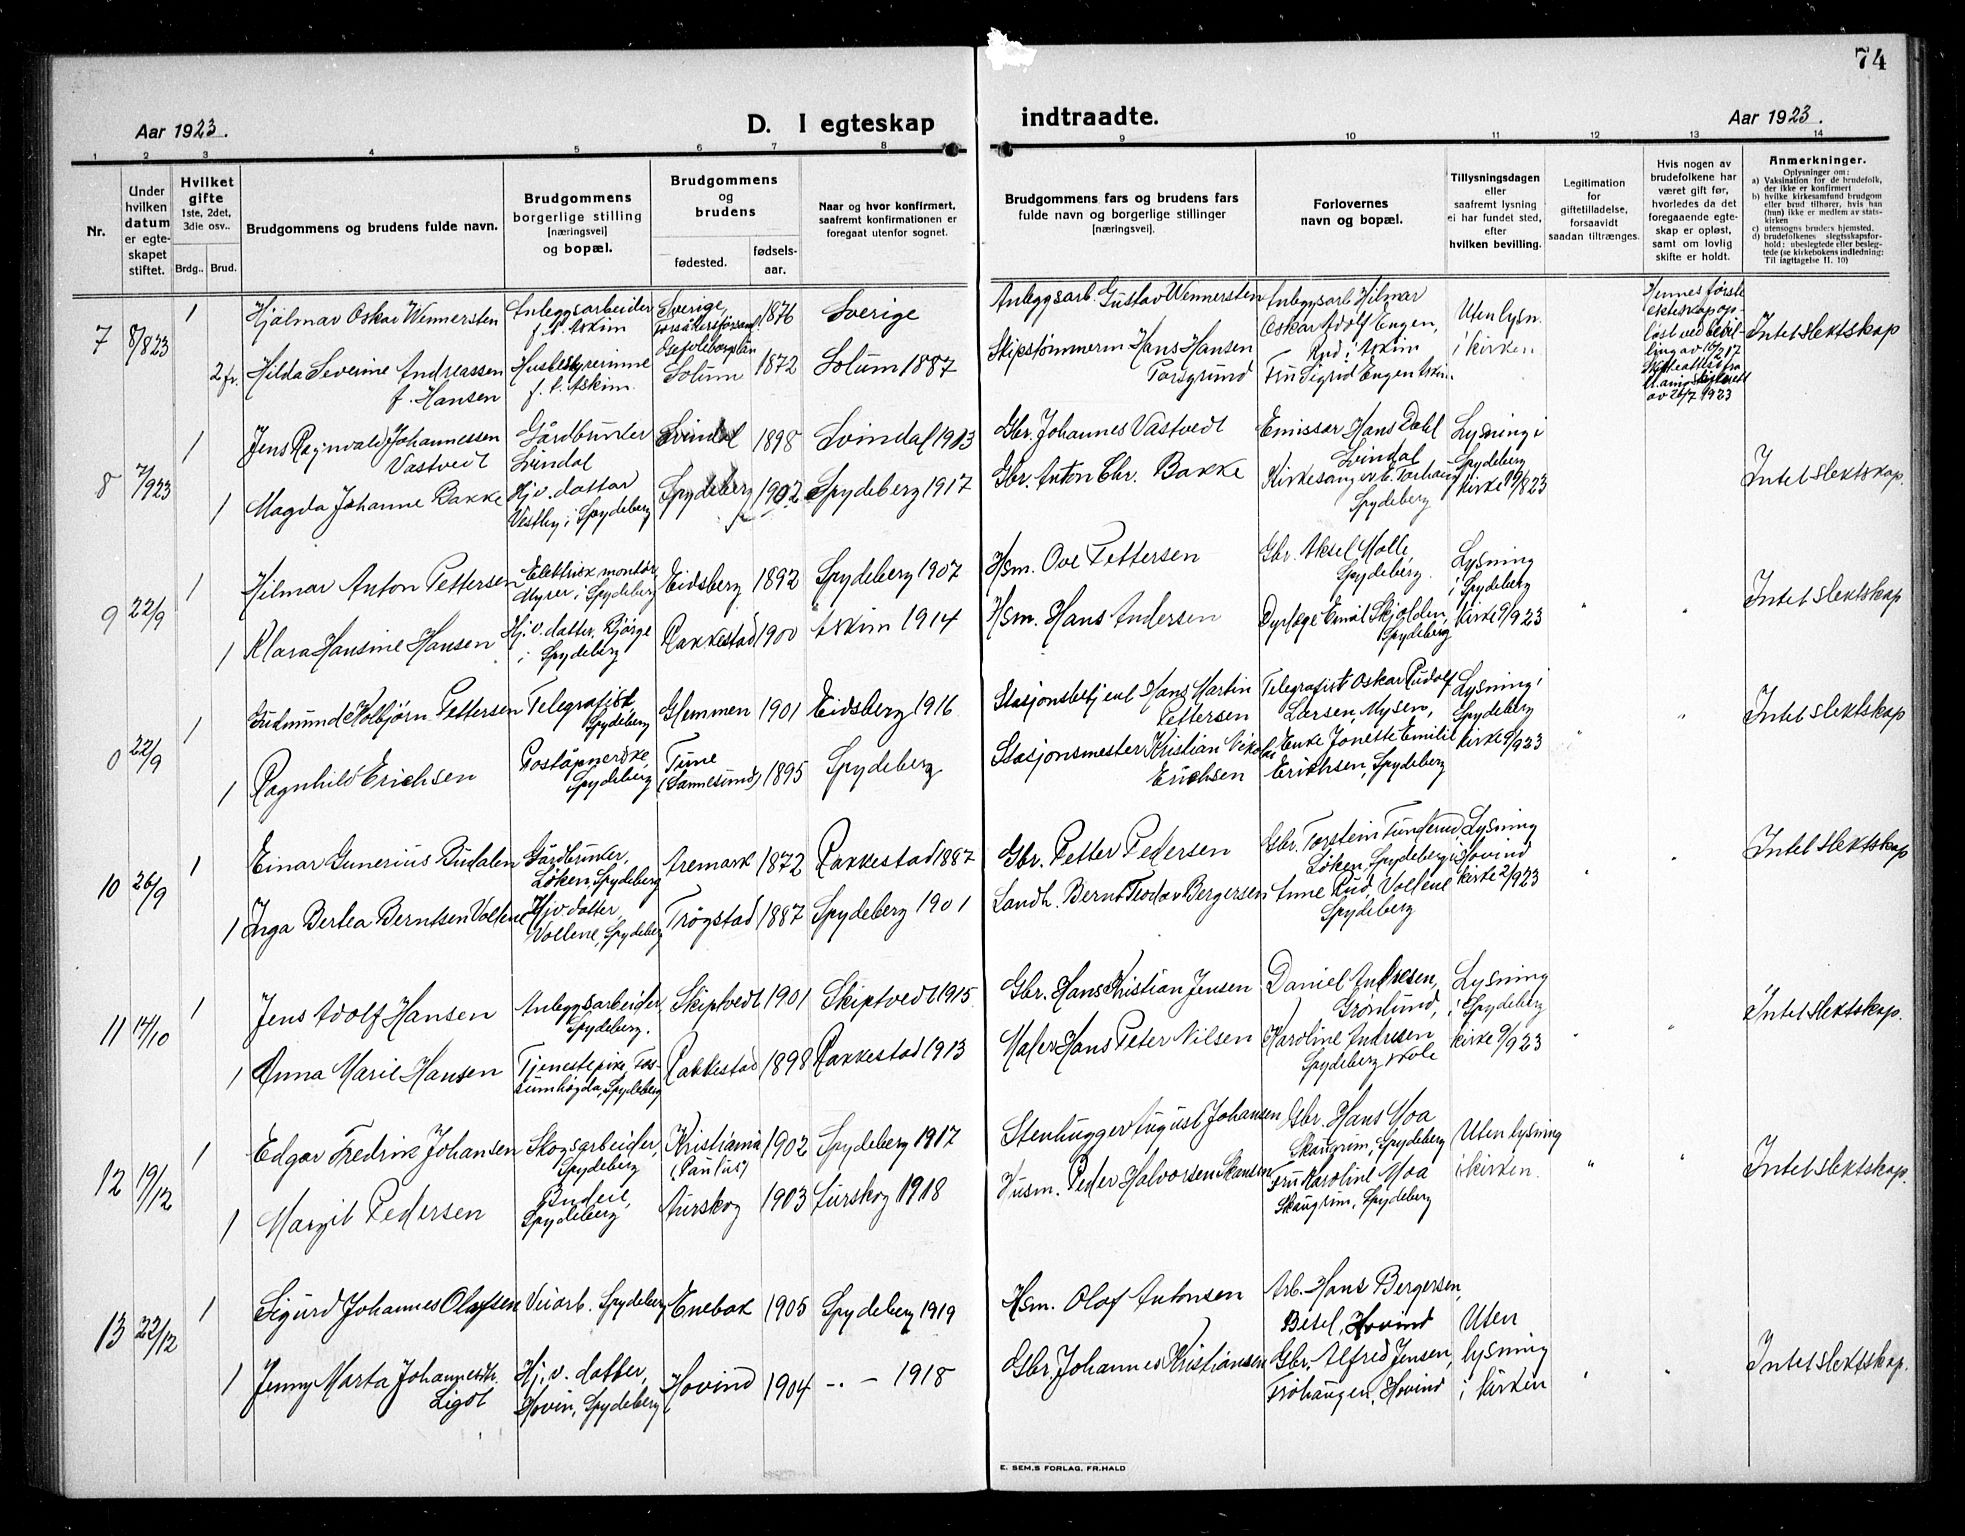 74
Aar 1923.
D. I egteskap indtraadte.
Aar 1923.
1 2 3 4 5 6 7 8 9 10 11 12 13 14
Nr.
Under hvilken datum er egteskapet stiftet.
Hvilket gifte 1ste, 2det, 3die osv..
Brdg.. Brud.
Brudgommens og brudens fulde navn.
Brudgommens borgerlige stilling [næringsvei] og bopæl.
Brudgommens og brudens
fødested. fødsels-aar.
Naar og hvor konfirmert, saafremt konfirmationen er foregaat utenfor sognet.
Brudgommens fars og brudens fars fulde navn og borgerlige stillinger [næringsvei].
Forlovernes navn og bopæl.
Tillysningsdagen eller saafremt lysning ei har fundet sted, efter hvilken bevilling.
Legitimation for giftetilladelse, forsaavidt saadan tiltrænges.
Hvis nogen av brudefolkene har været gift før, hvorledes da det foregaaende egteskap er opløst, samt om lovlig skifte er holdt.
Anmerkninger.
Oplysninger om:
a) Vaksination for de brudefolk, der ikke er konfirmert
b) hvilke kirkesamfund brudgom eller brud tilhører, hvis han (hun) ikke er medlem av statskirken
c) utensogns bruders hjemsted.
d) brudefolkenes slegtsskapsforhold: ubeslegtede eller beslegtede (se kirkebokens indledning: Til iagttagelse II. 10)
7 8/823 1 Hjalmar Oskar Wennersten Anleggsarbeider f. t. Askim Sverige, 1876 Sverige Anleggsarb. Gustav Wennersten Anleggsarb. Hilmar Oskar Adolf Engen, Rud i Askim Uten lysn. i kirken. Hennes første ekteskap opløst ved bevilling av 16/2 17 Intet slektskap
2 fr. Hilda Severine Andreassen f. Hansen Husbestyrerinne f. t. Askim. Solum 1872 Solum 1887 Skipstømmerm Hans Hansen Porsgrund Fru Sigrid Engen Askim. av 26/7 1923
8 7/923 1 Jens Ragnvald Johannessen Vastvedt Gårdbruker Svindal Svindal 1898 Svindal 1913 Gbr. Johannes Vastvedt Emissær Hans Dahl Svindal Lysning i Spydeberg kirke 19/823 Intet slektskap.
1 Magda Johanne Bakke Hj.v. datter Vestby i Spydeberg Spydeberg 1902 Spydeberg 1917 Gbr. Anton Chr. Bakke Kirkesanger E. Torhaug Spydeberg
9 22/9 1 Hilmar Anton Pettersen Elektrisk montør Myrer i Spydeberg Eidsberg 1892 Spydeberg 1907 Hsm. Ove Pettersen Gbr. Aksel Molle, Spydeberg. Lysning i Spydeberg kirke 9/923 " " Intet slektskap
1 Klara Hansine Hansen Hj.v. datter. Bjørge i Spydeberg Rakkestad 1900 Askim 1914 Hsm. Hans Andersen Dyrlæge Emil Skjolden, Spydeberg
0 22/9 1 Gudmund Kolbjørn Pettersen Telegrafist, Spydeberg Glemmen 1901 Eidsberg 1916 Stasjonsbetjent Hans Martin Pettersen Telegrafist Oskar Rudolf Larsen, Mysen, Lysning i Spydeberg kirke 9/923 " " Intet slektskap
1 Ragnhild Erichsen Poståpnerske, Spydeberg Tune (Sannesund) 1895 Spydeberg Stasjonsmester Kristian Nikolai Erichsen Enke Jonette Emilie Erichsen, Spydeberg
10 26/9 1 Einar Gunerius Budalen Gårdbruker, Løken, Spydeberg Aremark 1872 Rakkestad 1887 Gbr. Petter Pedersen Gbr. Torstein Tunderud, Løken, Spydeberg Lysning i Hovind kirke 2/923 " " Intet slektskap
1 Inga Bertea Berntsen Vollene Hj.v. datter, Vollene, Spydeberg Trøgstad 1887 Spydeberg 1901 Landh. Bernt Teodor Bergersen Anne Rud, Vollene Spydeberg
11 14/10 1 Jens Adolf Hansen Anleggsarbeider, Spydeberg. Skiptvedt 1901 Skiptvedt 1915. Gbr. Hans Kristian Jensen Daniel Andresen, Grønlund, Lysning i Spydeberg kirke 9/923 " " Intet slektskap.
1 Anna Marie Hansen Tjenestepike, Fossumhøgda, Spydeberg Rakkestad 1898 Rakkestad 1913 Maler Hans Peter Nilsen Karoline Andresen Spydeberg skole
12 19/12 1 Edgar Fredrik Johansen Skogsarbeider, Spydeberg Kristiania (Paulus) 1902 Spydeberg 1917 Stenhugger August Johansen Gbr. Hans Moa Skaugrim, Spydeberg Uten lysning i kirken. " " Intet slektskap.
1 Margit Pedersen Budeie, Spydeberg Aurskog 1903 Aurskog 1918 Husm. Peder Halvorsen Skansen Fru Karoline Moa Skaugrim, Spydeberg
13 22/12 1 Sigurd Johannes Olafsen Veiarb. Spydeberg Enebak 1905 Spydeberg 1919 Hsm. Olaf Antonsen Arb. Hans Bergersen, Besel, Hovind Uten lysning i kirken " " Intet slektskap.
1 Jenny Marta Johannesdtr. Ligot Hj.v. datter, Hovin, Spydeberg Hovind 1904 -.- 1918 Gbr. Johannes Kristiansen Gbr. Alfred Jensen, Frøhaugen, Hovind
E. SEM,S FORLAG, FR.HALD